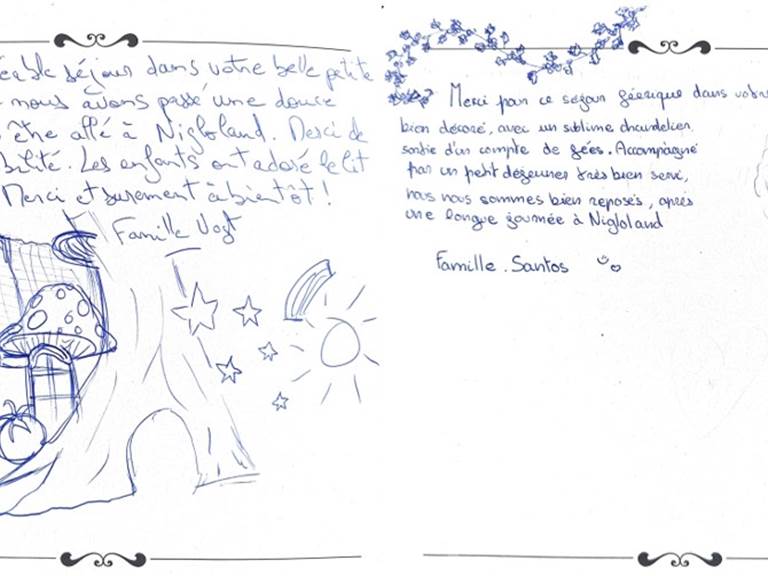 éable séjour dans votre belle petite
nous avons passé une douce
être allé à Nigloland. Merci de
bilité. Les enfants ont adoré le lit
Merci et surement à bientôt !
Famille Vogt
Merci pour ce séjour féerique dans votre
bien décoré, avec un sublime chandelier
sortie d'un compte de fées. Accompagné
par un petit déjeuner très bien servi,
nous nous sommes bien reposés, après
une longue journée à Nigloland
Famille. Santos